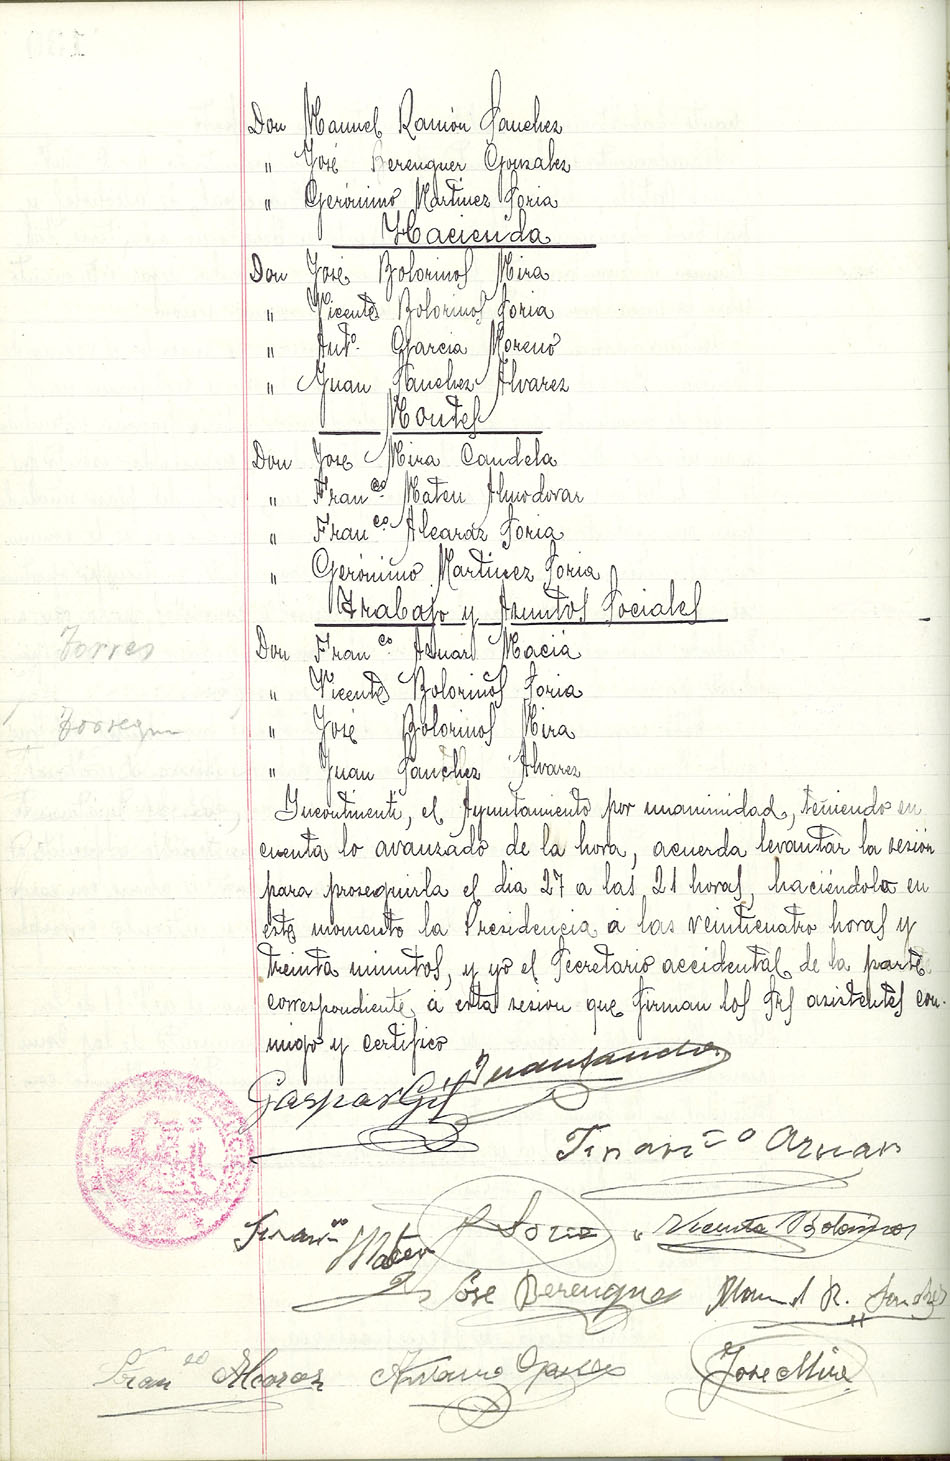 Don Manuel Ramón Sanchez
" José Berenguer Gonzalez
" Gerónimo Martinez Soria
Hacienda
Don José Bolorinos Mira
" Vicente Bolorinos Soria
" Antº. Garcia Moreno
" Juan Sanchez Alvarez
Montes
Don José Mira Candela
" Franco. Mateu Almodovar
" Franco. Alcaraz Soria
" Gerónimo Martinez Soria
Trabajo y Asuntos Sociales
Don Franco. Asnar Maciá
Torres
" Vicente Bolorinos Soria
" José Bolorinos Mira
" Juan Sanchez Alvarez
Incontinenti, el Ayuntamiento por unanimidad, teniendo en
cuenta lo avanzado de la hora, acuerda levantar la sesión
para proseguirla el dia 27 a las 21 horas, haciéndolo en
este momento la Presidencia á las veinticuatro horas y
treinta minutos, y yo el Secretario accidental de la parte
correspondiente á esta sesion que firman los Srs asistentes con-
migo y certifico
Gaspar Gil Juan Sanchez
Franco Aznar
Fran Mateu Soria Vicente Bolorinos
José Berenguer Manuel R. Sanchez
Franco Alcaraz Antonio Garcia Jose Mira